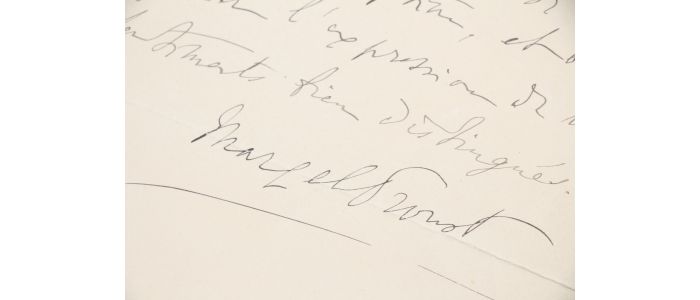 et
l'expression de
sentiments bien distingués.
Marcel Proust